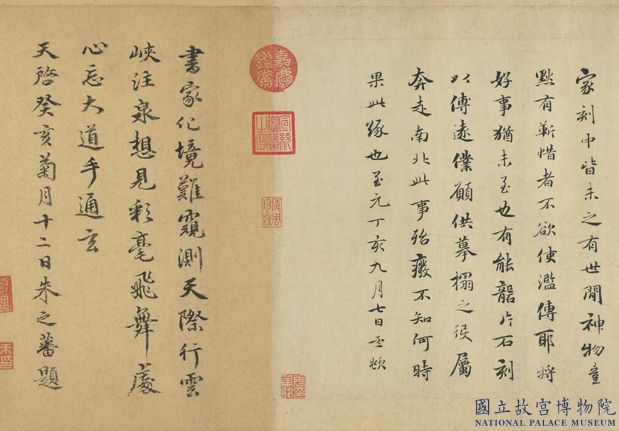 家刻中皆未之有世間神物豈
黙有蘄惜者不欲使濫傳耶將
好事猶未至也有能礱片石刻
以傳遠僕願供摹搨之役屬
奔走南北此事殆廢不知何時
果此緣也至元丁亥九月七日孟頫
嘉慶鑑賞
書家化境難窺測天際行雲
峽注泉想見彩毫飛舞處
心忘大道手通玄
天啓癸亥菊月十二日朱之蕃題
國立故宮博物院
NATIONAL PALACE MUSEUM